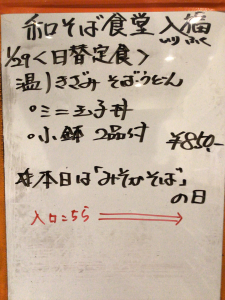 和そば食堂 入福
いり ふく
1/29<日替定食>
温)きざみそばうどん
○ミニ玉子丼
○小鉢 2品付 ¥850.-
本日は「みそかそば」
の日
入口こちら